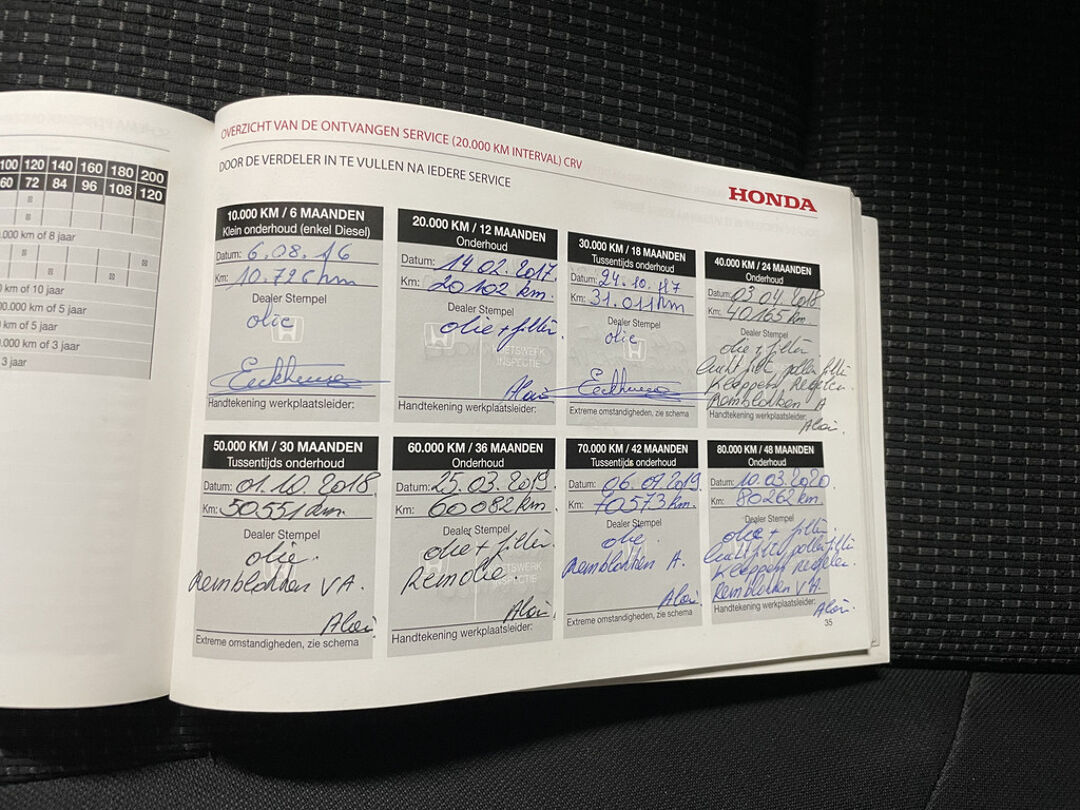 100 120 140 160 180 200
60 72 84 96 108 120
.000 km of 8 jaar
km of 10 jaar
00.000 km of 5 jaar
km of 5 jaar
.000 km of 3 jaar
3 jaar
OVERZICHT VAN DE ONTVANGEN SERVICE (20.000 KM INTERVAL) CRV
DOOR DE VERDELER IN TE VULLEN NA IEDERE SERVICE
HONDA
10.000 KM / 6 MAANDEN
Klein onderhoud (enkel Diesel)
Datum: 6.08.16
Km: 10.726 km
Dealer Stempel
olie
Handtekening werkplaatsleider:
20.000 KM / 12 MAANDEN
Onderhoud
Datum: 14.02.2017.
Km: 20102 km.
Dealer Stempel
olie + filter
NETSWERK
INSPECTIE
Handtekening werkplaatsleider:
30.000 KM / 18 MAANDEN
Tussentijds onderhoud
Datum: 24.10.17
Km: 31.011 km
Dealer Stempel
olie
Extreme omstandigheden, zie schema
40.000 KM / 24 MAANDEN
Onderhoud
Datum: 03.04.2018
Km: 40165 km.
Dealer Stempel
olie + filter
lucht filt pollen filti
Kleppen Regelen.
Remblokken A
Handtekening werkplaatsleider:
50.000 KM / 30 MAANDEN
Tussentijds onderhoud
Datum: 01.10.2018
Km: 50.551 km.
Dealer Stempel
olie.
Remblokken VA.
Extreme omstandigheden, zie schema
60.000 KM / 36 MAANDEN
Onderhoud
Datum: 25.03.2019
Km: 60082 km.
Dealer Stempel
olie + filter.
Remolie.
NETSWERK
INSPECTIE
Handtekening werkplaatsleider:
70.000 KM / 42 MAANDEN
Tussentijds onderhoud
Datum: 06.09.2019.
Km: 70573 km.
Dealer Stempel
olie
Remblokken A.
Extreme omstandigheden, zie schema
80.000 KM / 48 MAANDEN
Onderhoud
Datum: 10.03.2020.
Km: 80262 km.
Dealer Stempel
olie + filter
lucht filt pollen filti
Kleppen Regelen.
Remblokken VA.
Handtekening werkplaatsleider:
35